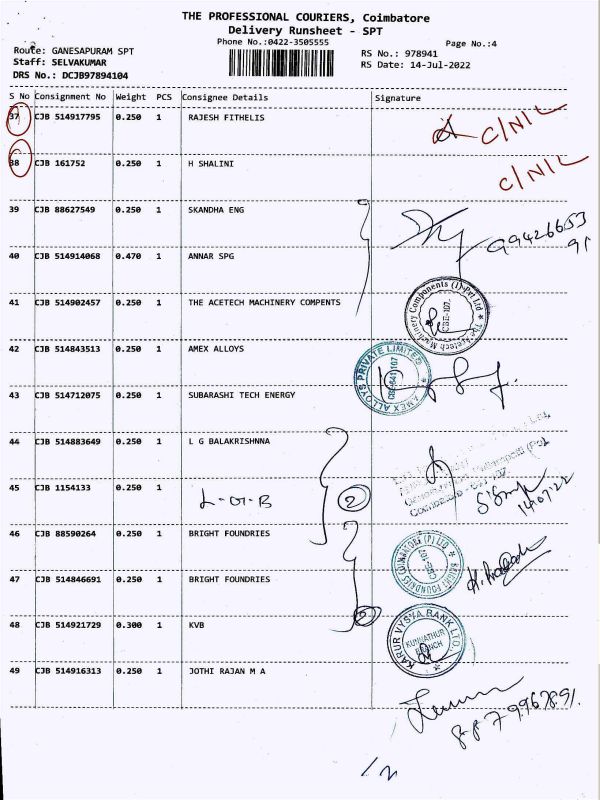 THE PROFESSIONAL COURIERS, Coimbatore
Delivery Runsheet - SPT
Phone No.:0422-3505555
Page No.:4
Route: GANESAPURAM SPT
RS No.: 978941
Staff: SELVAKUMAR
RS Date: 14-Jul-2022
DRS No.: DCJB97894104
S No Consignment No Weight PCS Consignee Details Signature
37 CJB 514917795 0.250 1 RAJESH FITHELIS C/N/L
38 CJB 161752 0.250 1 H SHALINI C/N/L
39 CJB 88627549 0.250 1 SKANDHA ENG 99426653
91
40 CJB 514914068 0.470 1 ANNAR SPG
41 CJB 514902457 0.250 1 THE ACETECH MACHINERY COMPENTS The Acetech Machinery Components (I) Pvt Ltd CBE-107
42 CJB 514843513 0.250 1 AMEX ALLOYS AMEX ALLOYS PRIVATE LIMITED CBE-641107
43 CJB 514712075 0.250 1 SUBARASHI TECH ENERGY
44 CJB 514883649 0.250 1 L G BALAKRISHNNA
45 CJB 1154133 0.250 1 L-G-B 2
14/07/22
46 CJB 88590264 0.250 1 BRIGHT FOUNDRIES BRIGHT FOUNDRIES COIMBATORE (P) LTD
47 CJB 514846691 0.250 1 BRIGHT FOUNDRIES
48 CJB 514921729 0.300 1 KVB KARUR VYSYA BANK LTD. KUNNATHUR BRANCH
49 CJB 514916313 0.250 1 JOTHI RAJAN M A